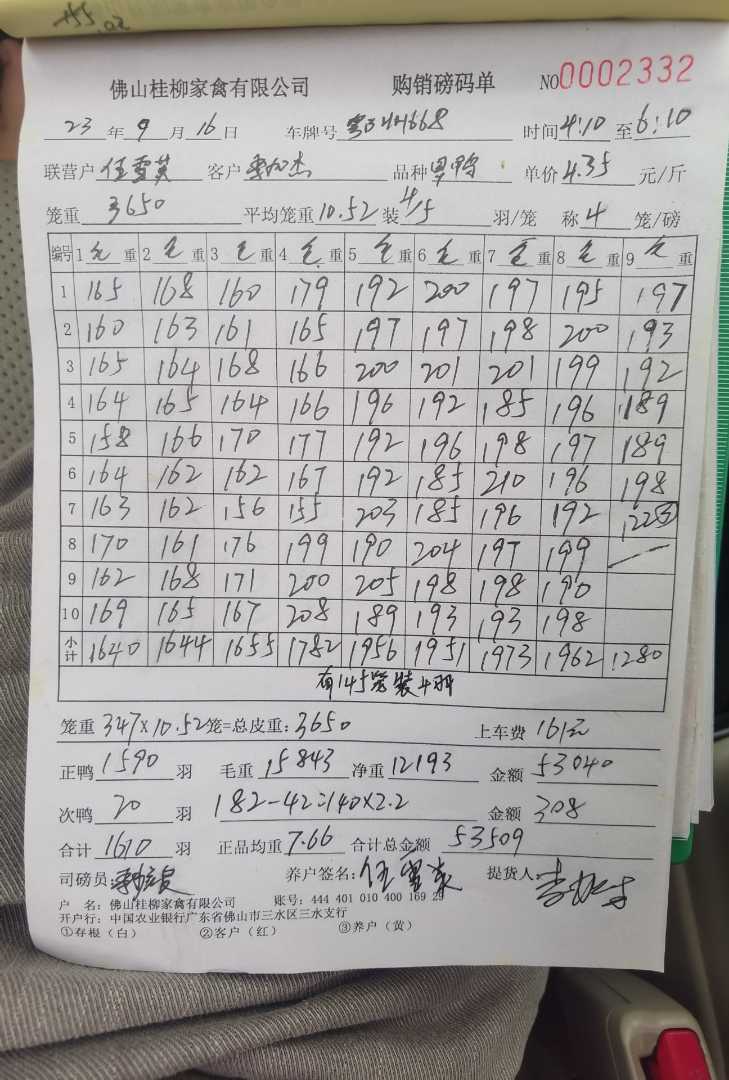 佛山桂柳家禽有限公司 购销磅码单 NO0002332
23年9月16日 车牌号 668 时间4:10至6:10
联营户 任雪英 客户 杰 品种 男鸭 单价4.35元/斤
笼重 3650 平均笼重10.52装4/5羽/笼 称4笼/磅
编号 1毛重 2毛重 3毛重 4毛重 5毛重 6毛重 7毛重 8毛重 9毛重
1 165 168 160 179 192 200 197 195 197
2 160 163 161 165 197 197 198 200 193
3 165 164 168 166 200 201 201 199 192
4 164 165 164 166 196 192 185 196 189
5 158 166 170 177 192 196 198 197 189
6 164 162 162 167 192 185 210 196 198
7 163 162 156 155 203 185 196 192 122③
8 170 161 176 199 190 204 197 199 —
9 162 168 171 200 205 198 198 190
10 169 165 167 208 189 193 193 198
小计 1640 1644 1655 1782 1956 1951 1973 1962 1280
有145笼装4羽
笼重 347×10.52笼=总皮重:3650 上车费 161元
正鸭1590羽 毛重15843净重12193 金额53040
次鸭20羽 182-42=140×2.2 金额308
合计1610羽 正品均重7.66 合计总金额53509
司磅员: 养户签名: 任雪英 提货人:
户 名:佛山桂柳家禽有限公司 账号:444 401 010 400 169 29
开户行:中国农业银行广东省佛山市三水区三水支行
①存根(白) ②客户(红) ③养户(黄)